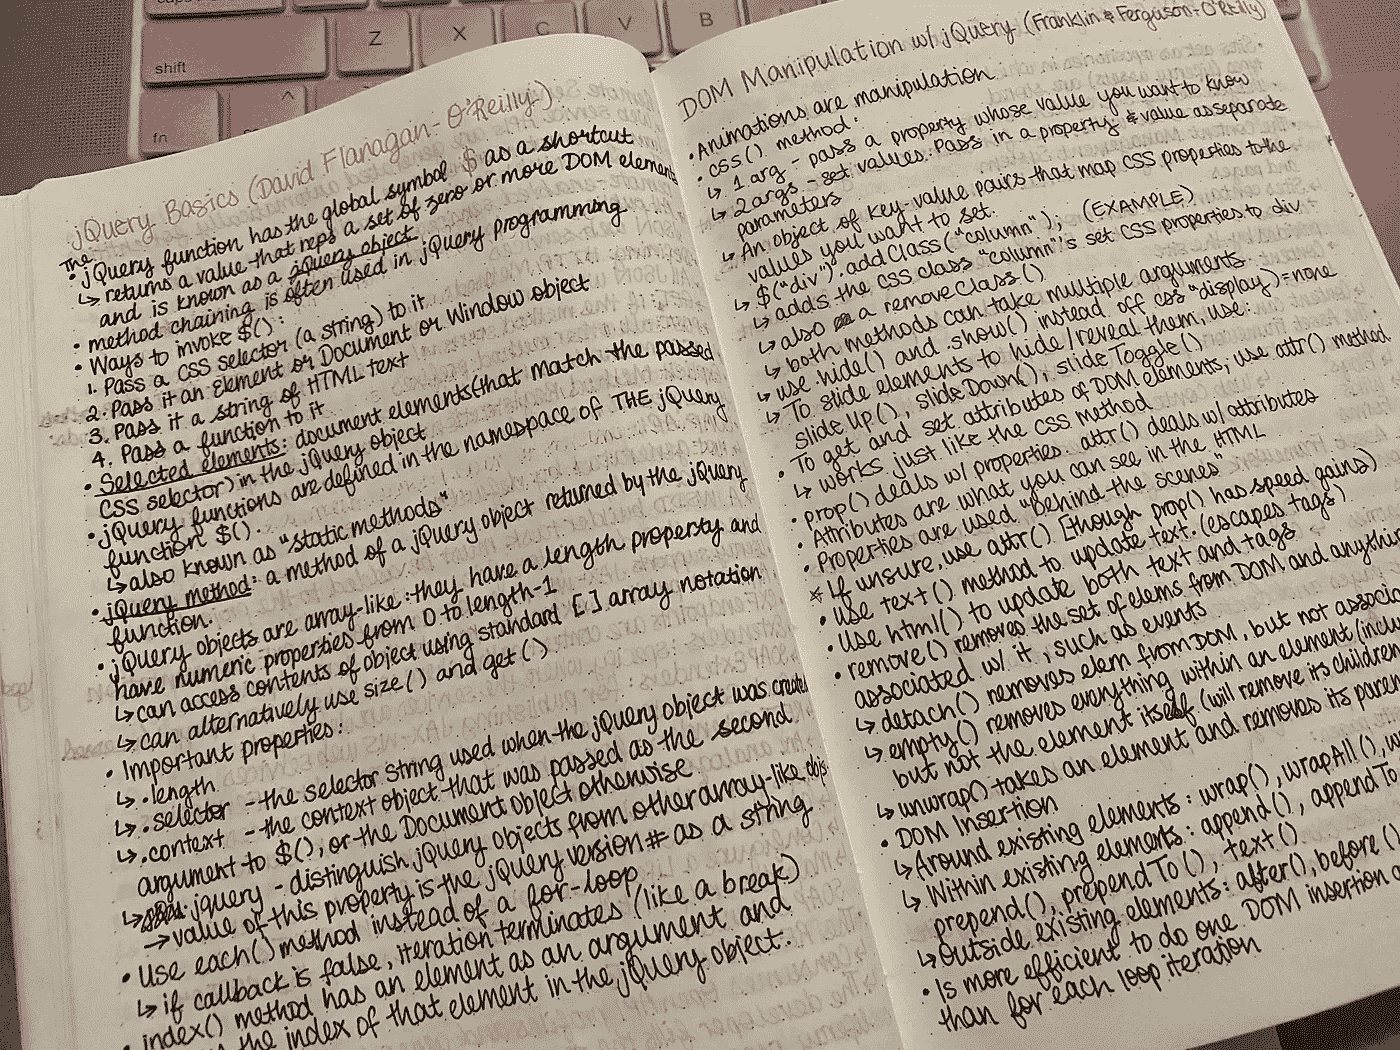 caps lock
Z
X
C
V
B
N
shift
fn
^
jQuery Basics (David Flanagan - O'Reilly)
The
• jQuery function has the global symbol $ as a shortcut
↳ returns a value that reps a set of zero or more DOM elements
and is known as a jQuery object
• method chaining is often used in jQuery programming
• Ways to invoke $():
1. Pass a CSS selector (a string) to it
2. Pass it an Element or Document or Window object
3. Pass it a string of HTML text
4. Pass a function to it
• Selected elements: document elements (that match the passed
CSS selector) in the jQuery object
• jQuery functions are defined in the namespace of THE jQuery
function $().
↳ also known as "static methods"
• jQuery method: a method of a jQuery object returned by the jQuery
function.
• jQuery objects are array-like: they have a length property and
have numeric properties from 0 to length-1
↳ can access contents of object using standard [ ] array notation
↳ can alternatively use size() and get()
• Important properties:
↳ .length
↳ .selector - the selector string used when the jQuery object was created
↳ .context - the context object that was passed as the second
argument to $(), or the Document object otherwise
↳ .jquery - distinguish jQuery objects from other array-like objs.
→ value of this property is the jQuery version # as a string
• Use each() method instead of a for-loop
↳ if callback is false, iteration terminates (like a break)
• index() method has an element as an argument and
the index of that element in the jQuery object.
DOM Manipulation w/ jQuery (Franklin & Ferguson - O'Reilly)
• Animations are manipulation
• css() method:
↳ 1 arg - pass a property whose value you want to know
↳ 2 args - set values. Pass in a property & value as separate
parameters
↳ An object of key-value pairs that map CSS properties to the
values you want to set.
↳ $("div").addClass("column"); (EXAMPLE)
↳ adds the CSS class "column"'s set CSS properties to div
↳ also a removeClass()
↳ both methods can take multiple arguments
• use .hide() and .show() instead off css "display)=none
↳ To slide elements to hide/reveal them, use:
slideUp(), slideDown(), slideToggle()
• To get and set attributes of DOM elements, use attr() method
↳ works just like the CSS method
• prop() deals w/ properties. attr() deals w/ attributes
• Attributes are what you can see in the HTML
• Properties are used "behind the scenes"
* If unsure, use attr() [though prop() has speed gains)
• Use text() method to update text. (escapes tags)
• Use html() to update both text and tags
• remove() removes the set of elems from DOM and anything
associated w/ it, such as events
↳ detach() removes elem from DOM, but not
↳ empty() removes everything within an element
but not the element itself (will remove its children
↳ unwrap() takes an element and removes its
• DOM Insertion
↳ Around existing elements: wrap(), wrapAll(),
↳ Within existing elements: append(), appendTo
prepend(), prependTo(), text()
↳ Outside existing elements: after(), before()
• Is more efficient to do one DOM insertion
than for each loop iteration